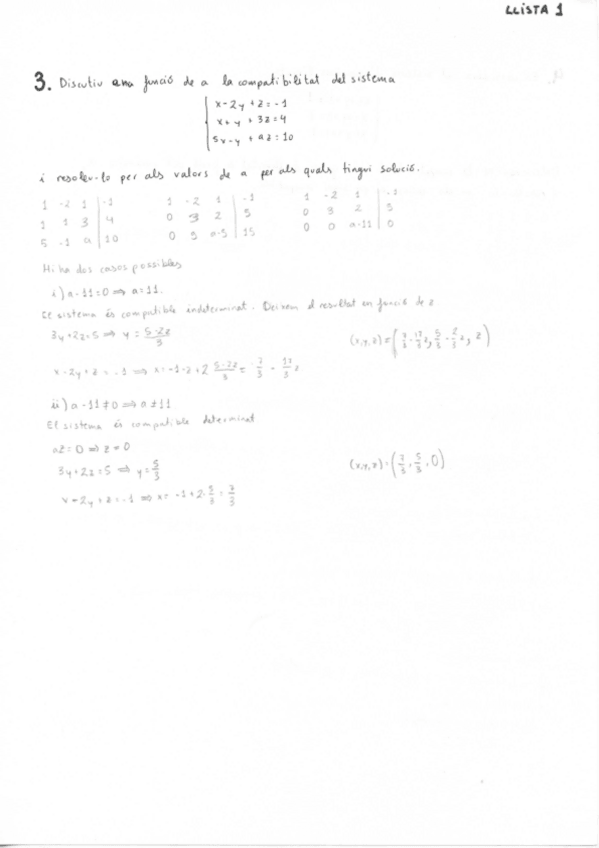 LLISTA 1
3. Discutiu en funció de a la compatibilitat del sistema
x-2y+z=-1
x+y+3z=4
5x-y+az=10
i resoleu-lo per als valors de a per als quals tingui solució.
1 -2 1 | -1    1 -2 1 | -1    1 -2 1 | -1
1 1 3 | 4    0 3 2 | 5    0 3 2 | 5
5 -1 a | 10    0 9 a-5 | 15    0 0 a-11 | 0
Hi ha dos casos possibles
i) a-11=0 ⟹ a=11.
El sistema és compatible indeterminat. Deixem el resultat en funció de z
3y+2z=5 ⟹ y = (5-2z)/3    (x,y,z)=(7/3 - z, 5/3 - 2/3 z, z)
x-2y+z=-1 ⟹ x=-1-z+2 (5-2z)/3 = 7/3 - z
ii) a-11≠0 ⟹ a≠11
El sistema és compatible determinat
az=0 ⟹ z=0
3y+2z=5 ⟹ y=5/3    (x,y,z)=(7/3, 5/3, 0)
x-2y+z=-1 ⟹ x=-1+2·5/3=7/3